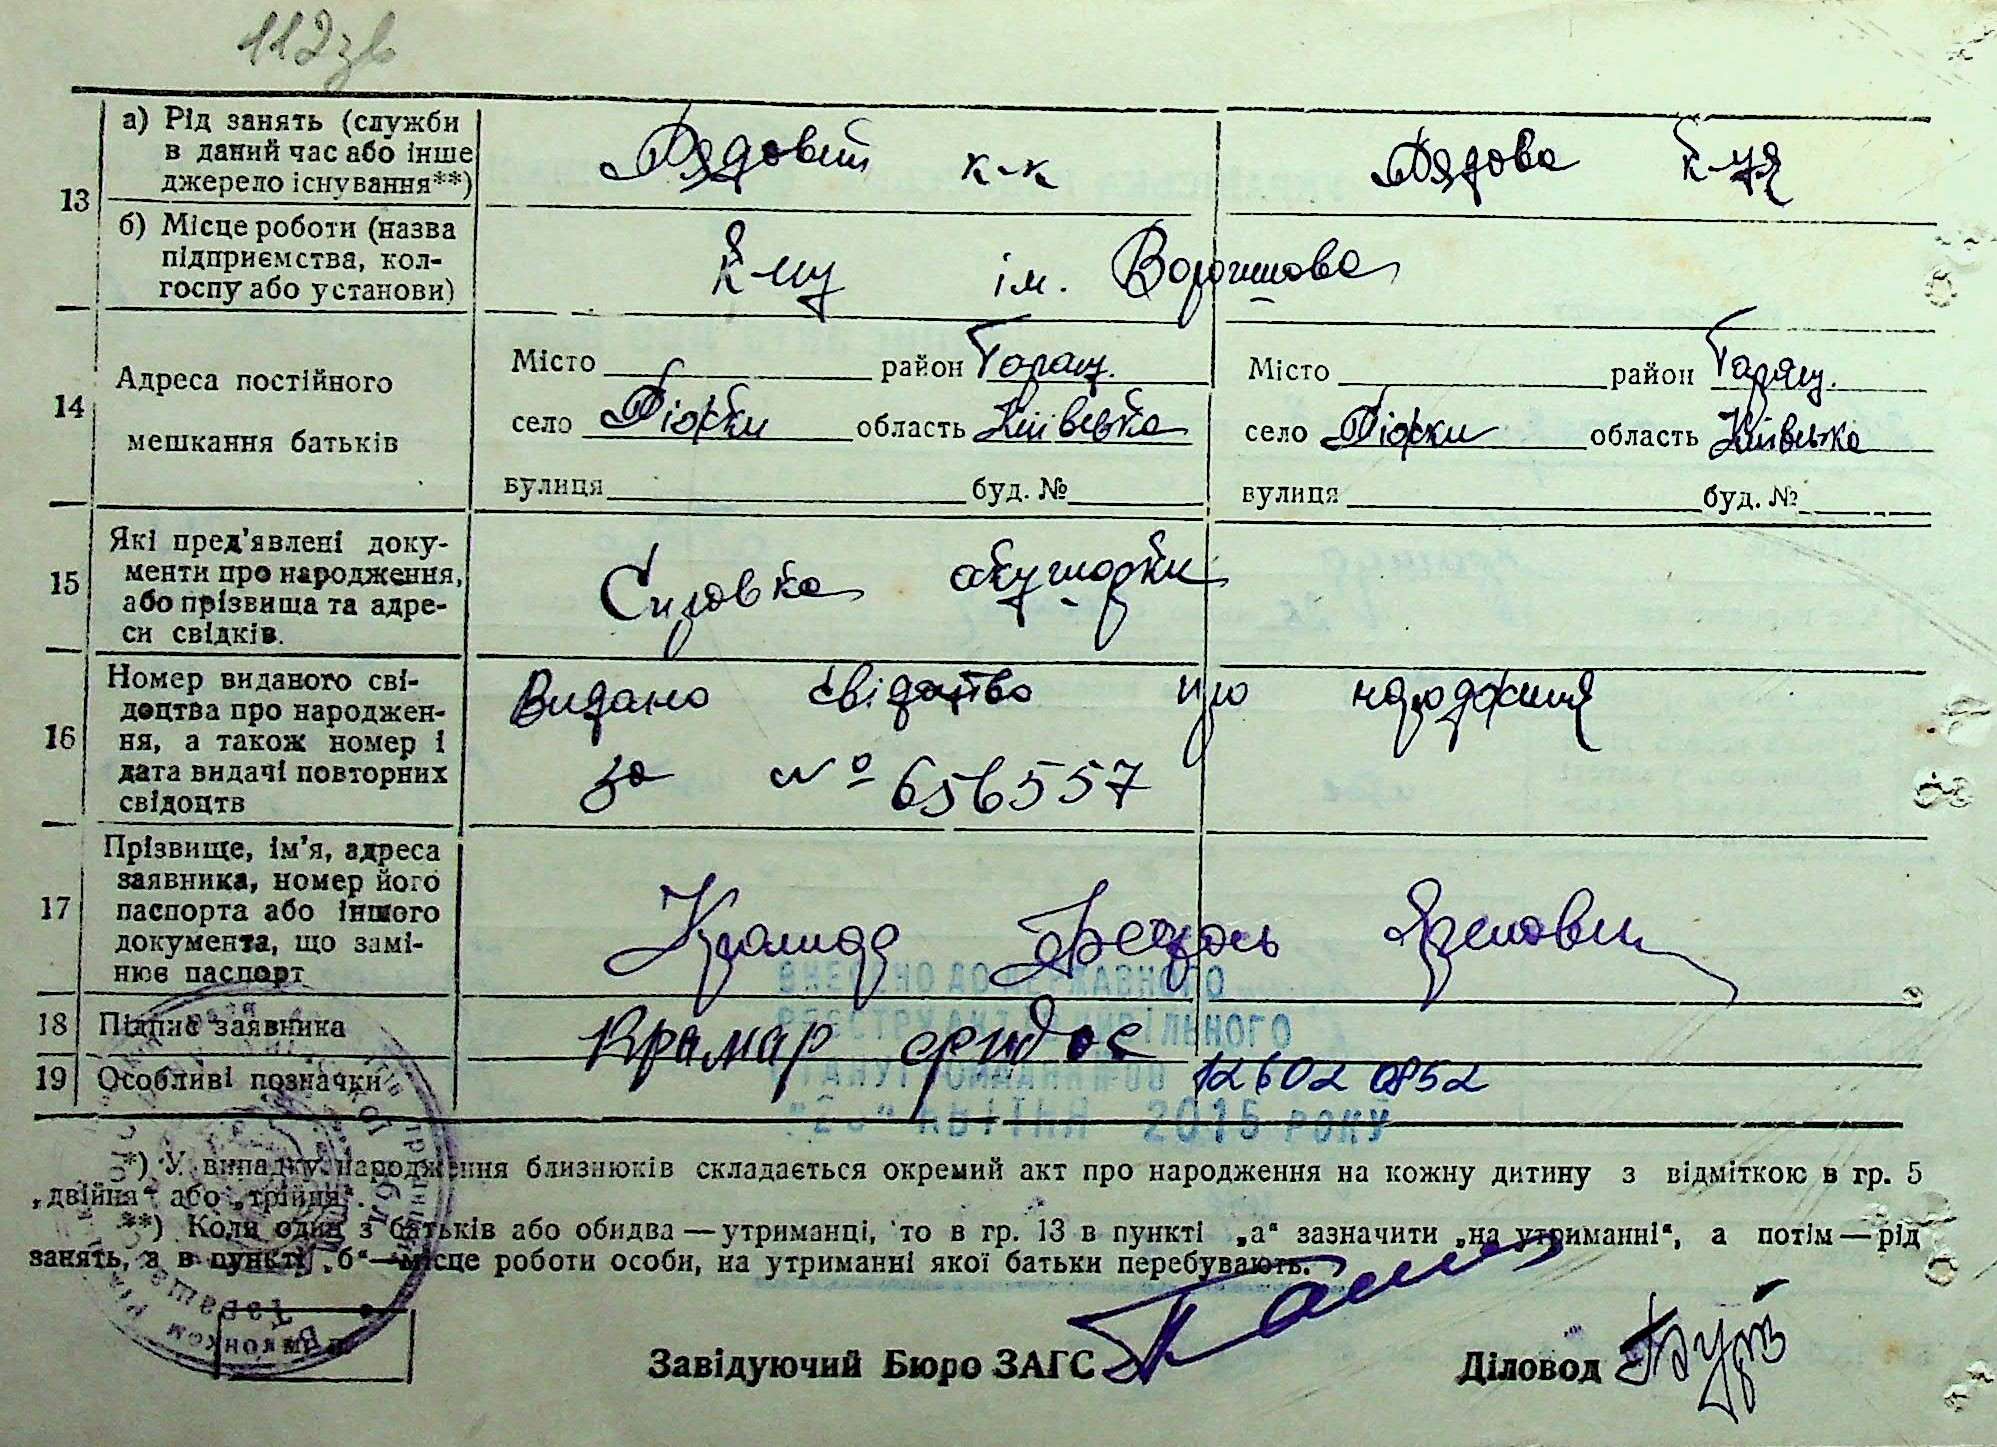 112зв
13 а) Рід занять (служби в даний час або інше джерело існування**) Рядовий к-к Рядова к-ця
б) Місце роботи (назва підприємства, колгоспу або установи) к-пу ім. Ворошилова
14 Адреса постійного мешкання батьків
Місто район Таращ. Місто район Таращ.
село область Київська село область Київська
вулиця буд. № вулиця буд. №
15 Які пред'явлені документи про народження, або прізвища та адреси свідків. Справка акушорки
16 Номер виданого свідоцтва про народження, а також номер і дата видачі повторних свідоцтв
Видано свідотство про народженя
за № 656557
17 Прізвище, ім'я, адреса заявника, номер його паспорта або іншого документа, що замінює паспорт
ВНЕСЕНО ДО ДЕРЖАВНОГО
18 Підпис заявника Крамар
РЕЄСТРУ АКТІВ ЦИВІЛЬНОГО
19 Особливі позначки 12602 0852
СТАНУ ГРОМАДЯН
КВІТНЯ 2015 РОКУ
*) У випадку народження близнюків складається окремий акт про народження на кожну дитину з відміткою в гр. 5
„двійня“ або „трійня“.
**) Коли один з батьків або обидва — утриманці, то в гр. 13 в пункті „а“ зазначити „на утриманні“, а потім — рід
занять, а в пункті „б“ — місце роботи особи, на утриманні якої батьки перебувають.
Завідуючий Бюро ЗАГС
Діловод